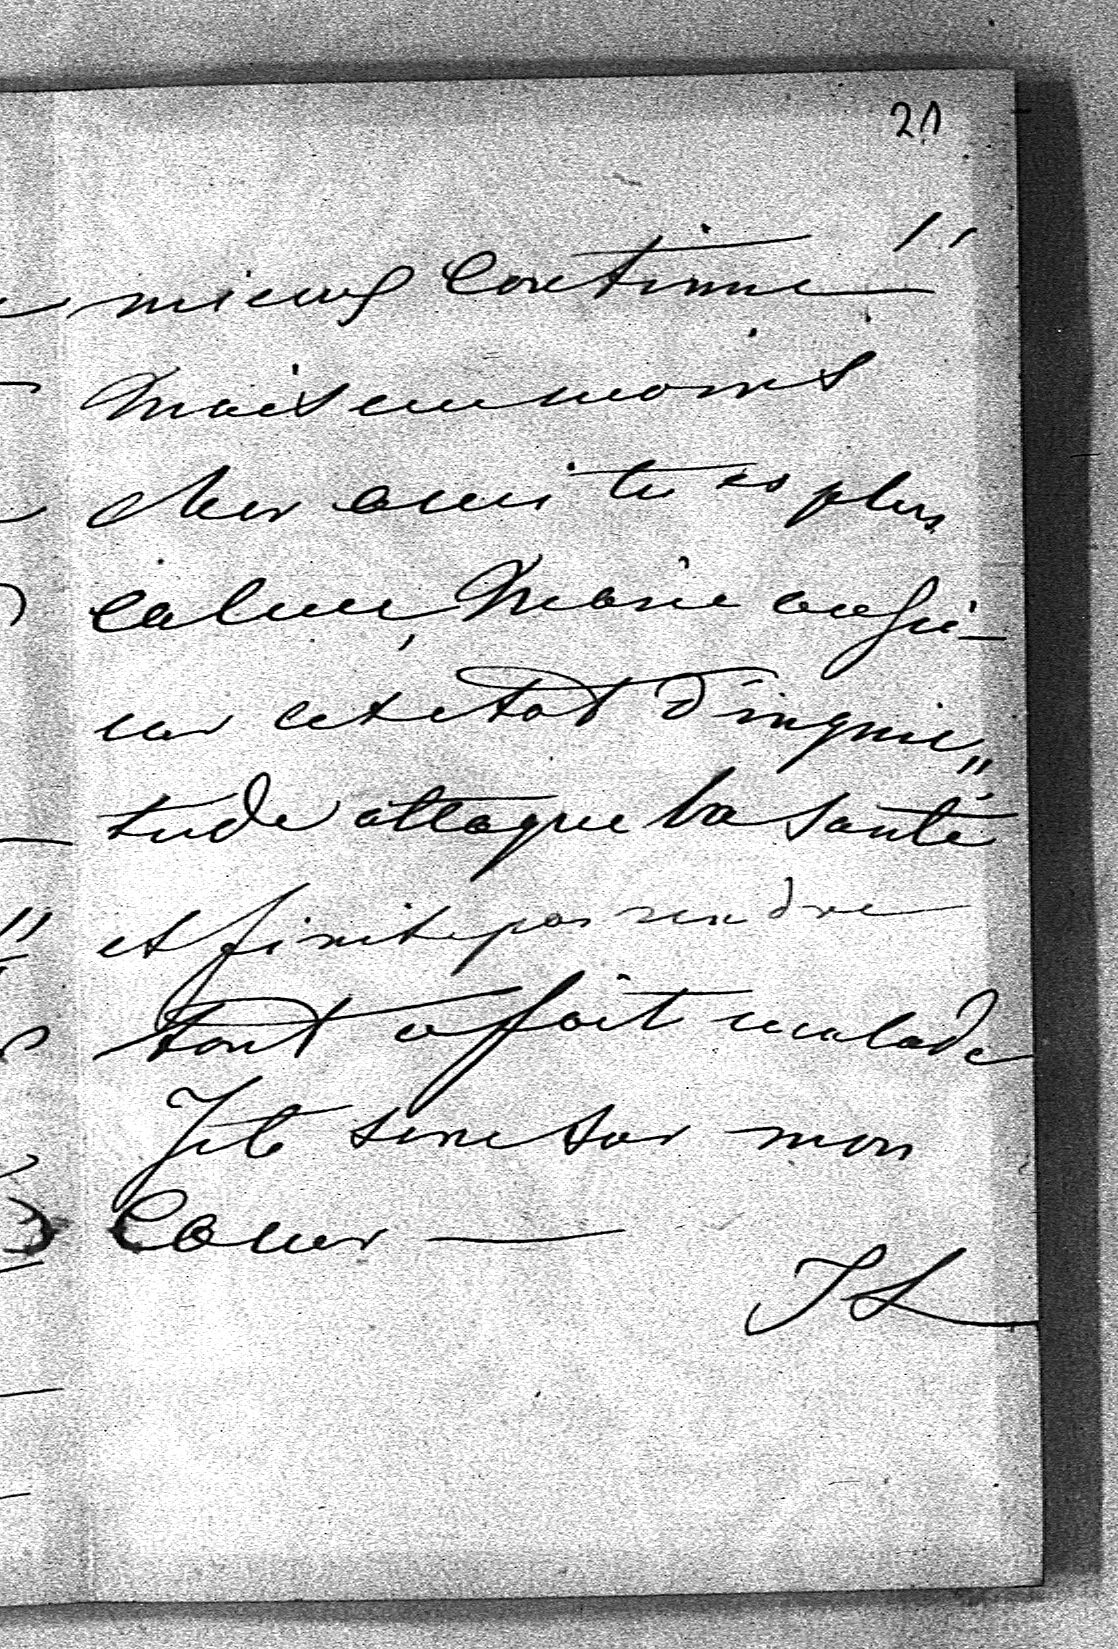 21
mieux continue
Mais au moins
cher ami tu es plus
calme, Marie aussi
car cet etat d'inquie„
tude attaque la santé
et finit par rendre
tout a fait malade
Je te serre sur mon
Coeur —
JL